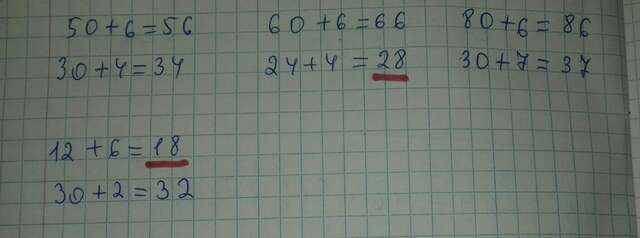 50+6=56 60+6=66 80+6=86
30+4=34 24+4=28 30+7=37
12+6=18
30+2=32